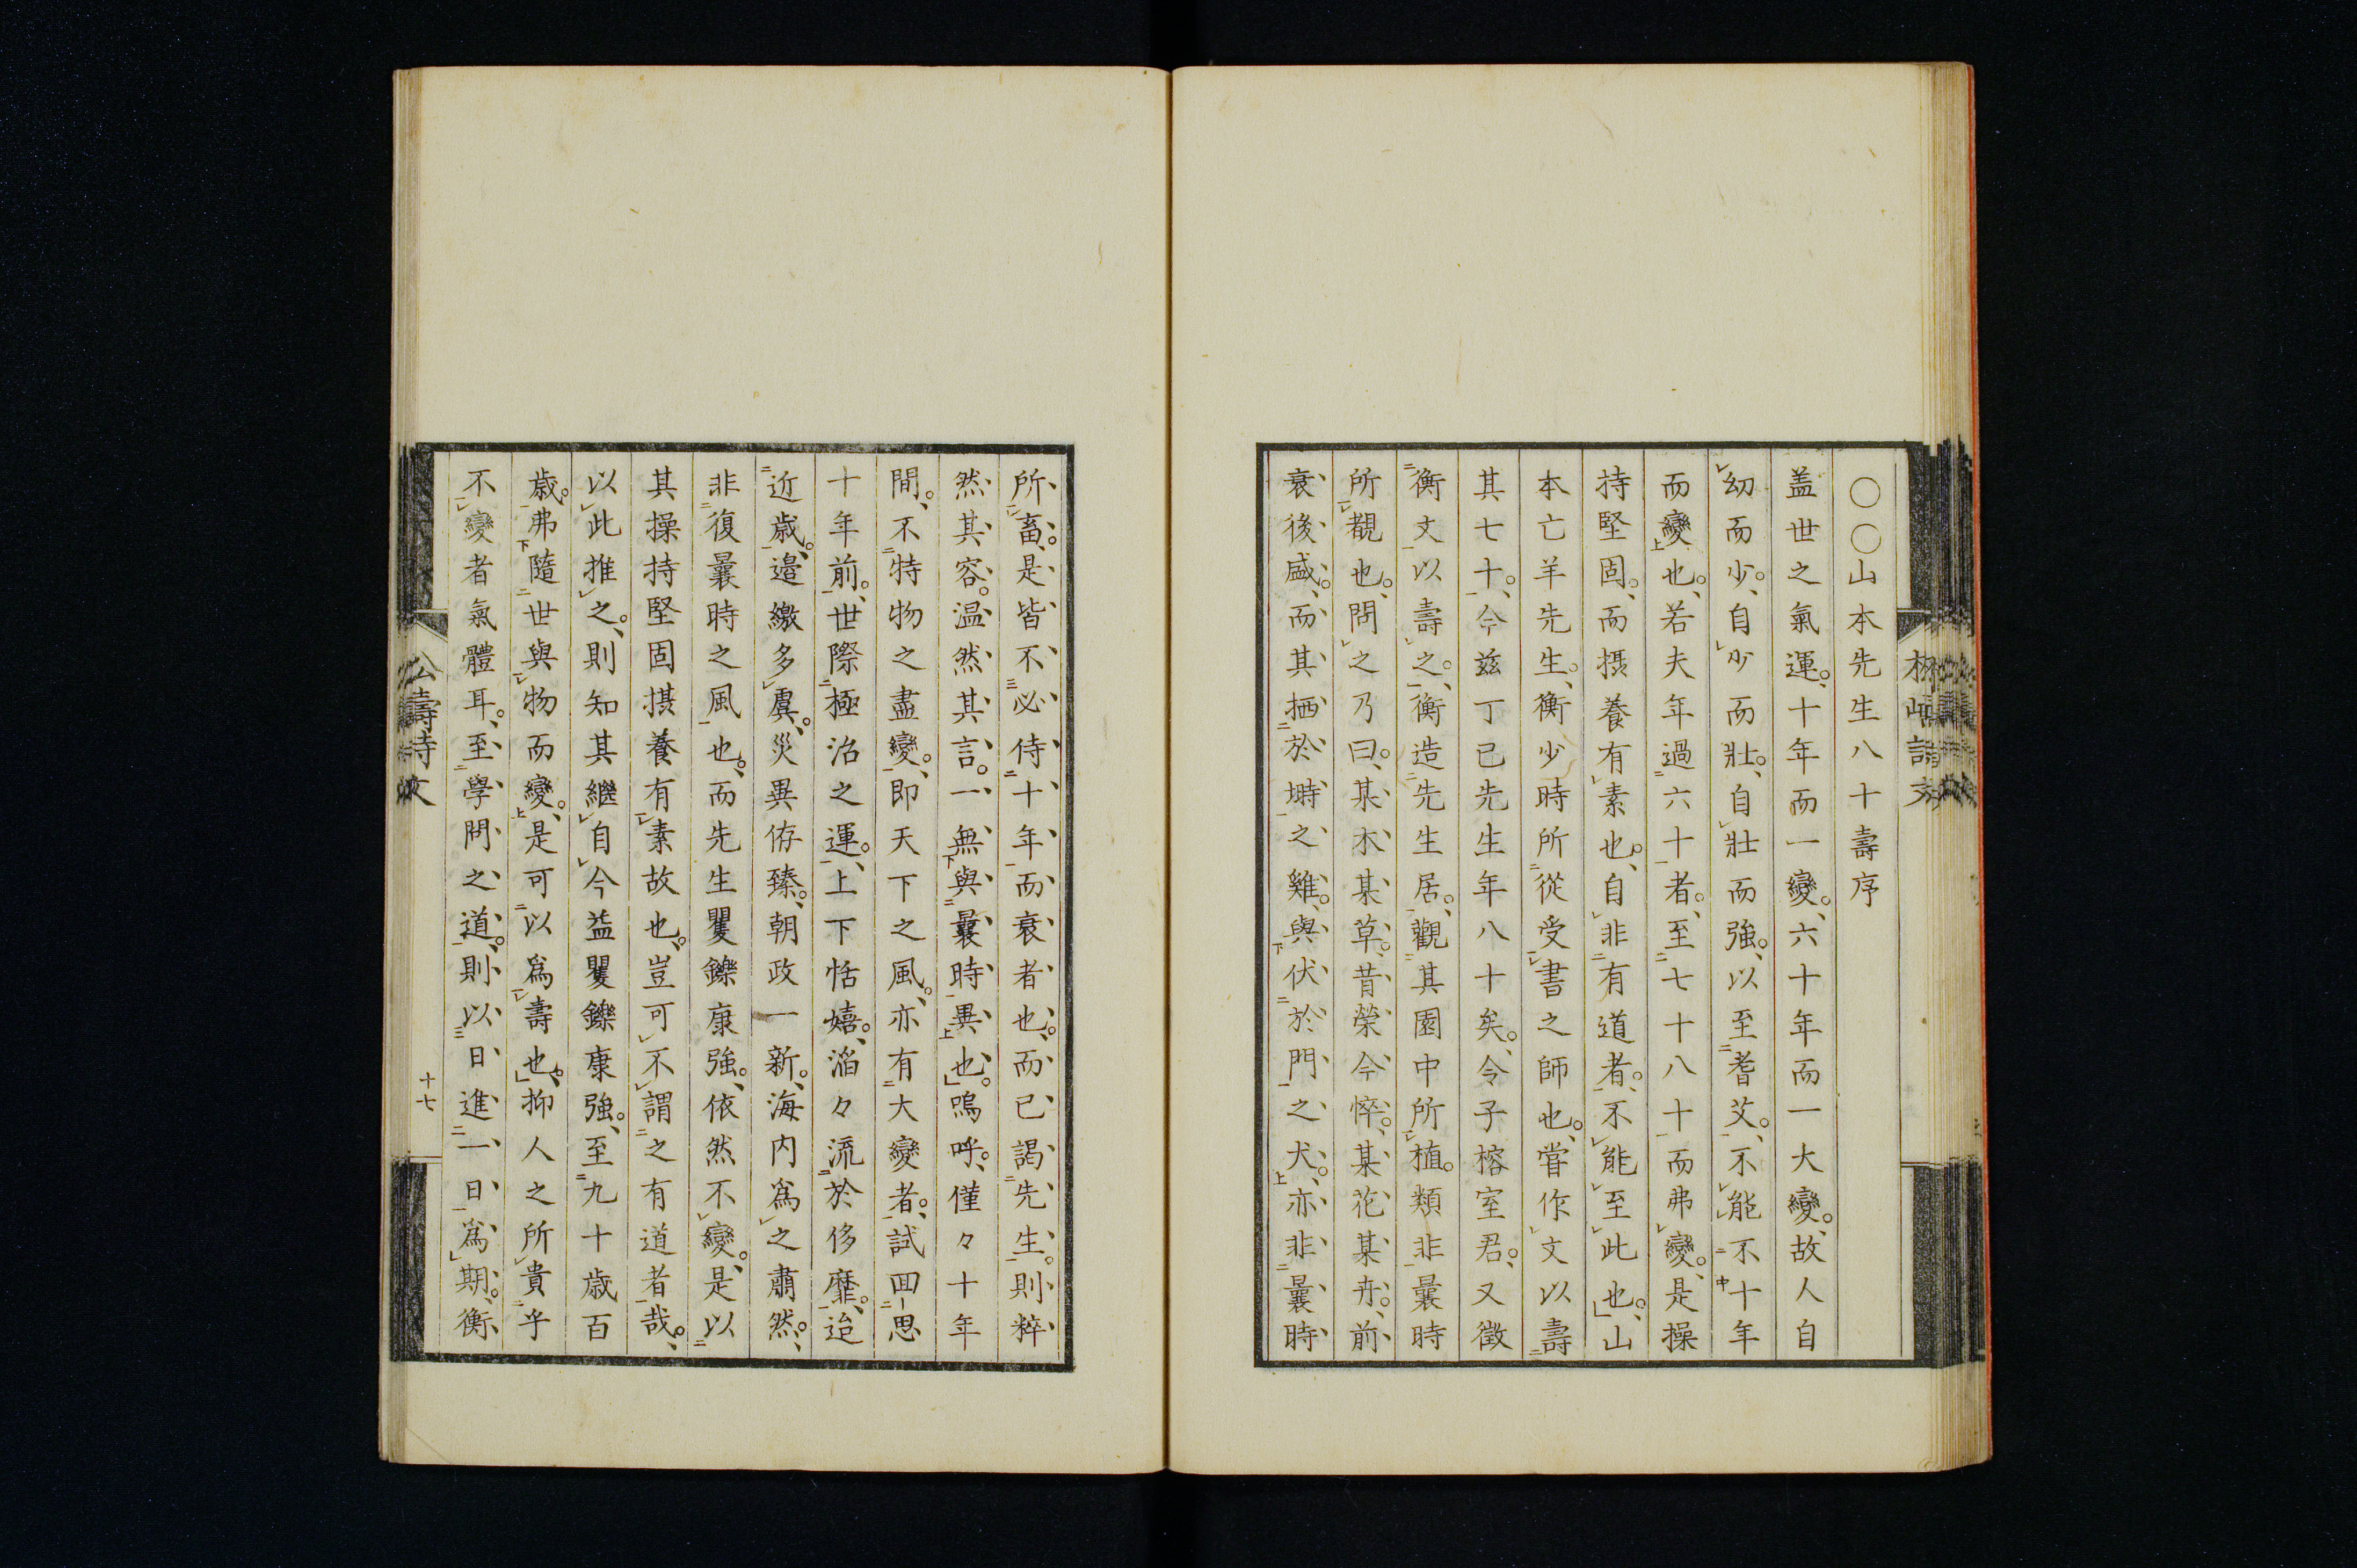 〇〇山本先生八十壽序
盖世之氣運十年而一變六十年而一大變故人自
幼而少自少而壯自壯而強以至耆艾不能不十年
而變也若夫年過六十者至七十八十而弗變是操
持堅固而摂養有素也自非有道者不能至此也山
本亡羊先生衡少時所從受書之師也嘗作文以壽
其七十今兹丁巳先生年八十矣令子榕室君又徵
衡文以壽之衡造先生居觀其園中所植類非曩時
所覩也問之乃曰某木某草昔榮今悴某花某卉前
衰後盛而其栖於塒之雞與伏於門之犬亦非曩時
所畜是皆不必待十年而衰者也而已謁先生則粹
然其容温然其言一無與曩時異也嗚呼僅々十年
間不特物之盡變即天下之風亦有大變者試回思
十年前世際極治之運上下恬嬉滔々流於侈靡迨
近歳邉繳多虞災異侟臻朝政一新海内爲之肅然
非復曩時之風也而先生矍鑠康強依然不變是以
其操持堅固摂養有素故也豈可不謂之有道者哉
以此推之則知其繼自今益矍鑠康強至九十歳百
歳弗隨世與物而變是可以爲壽也抑人之所貴乎
不變者氣體耳至學問之道則以日進一日爲期衡
壽詩文
十七